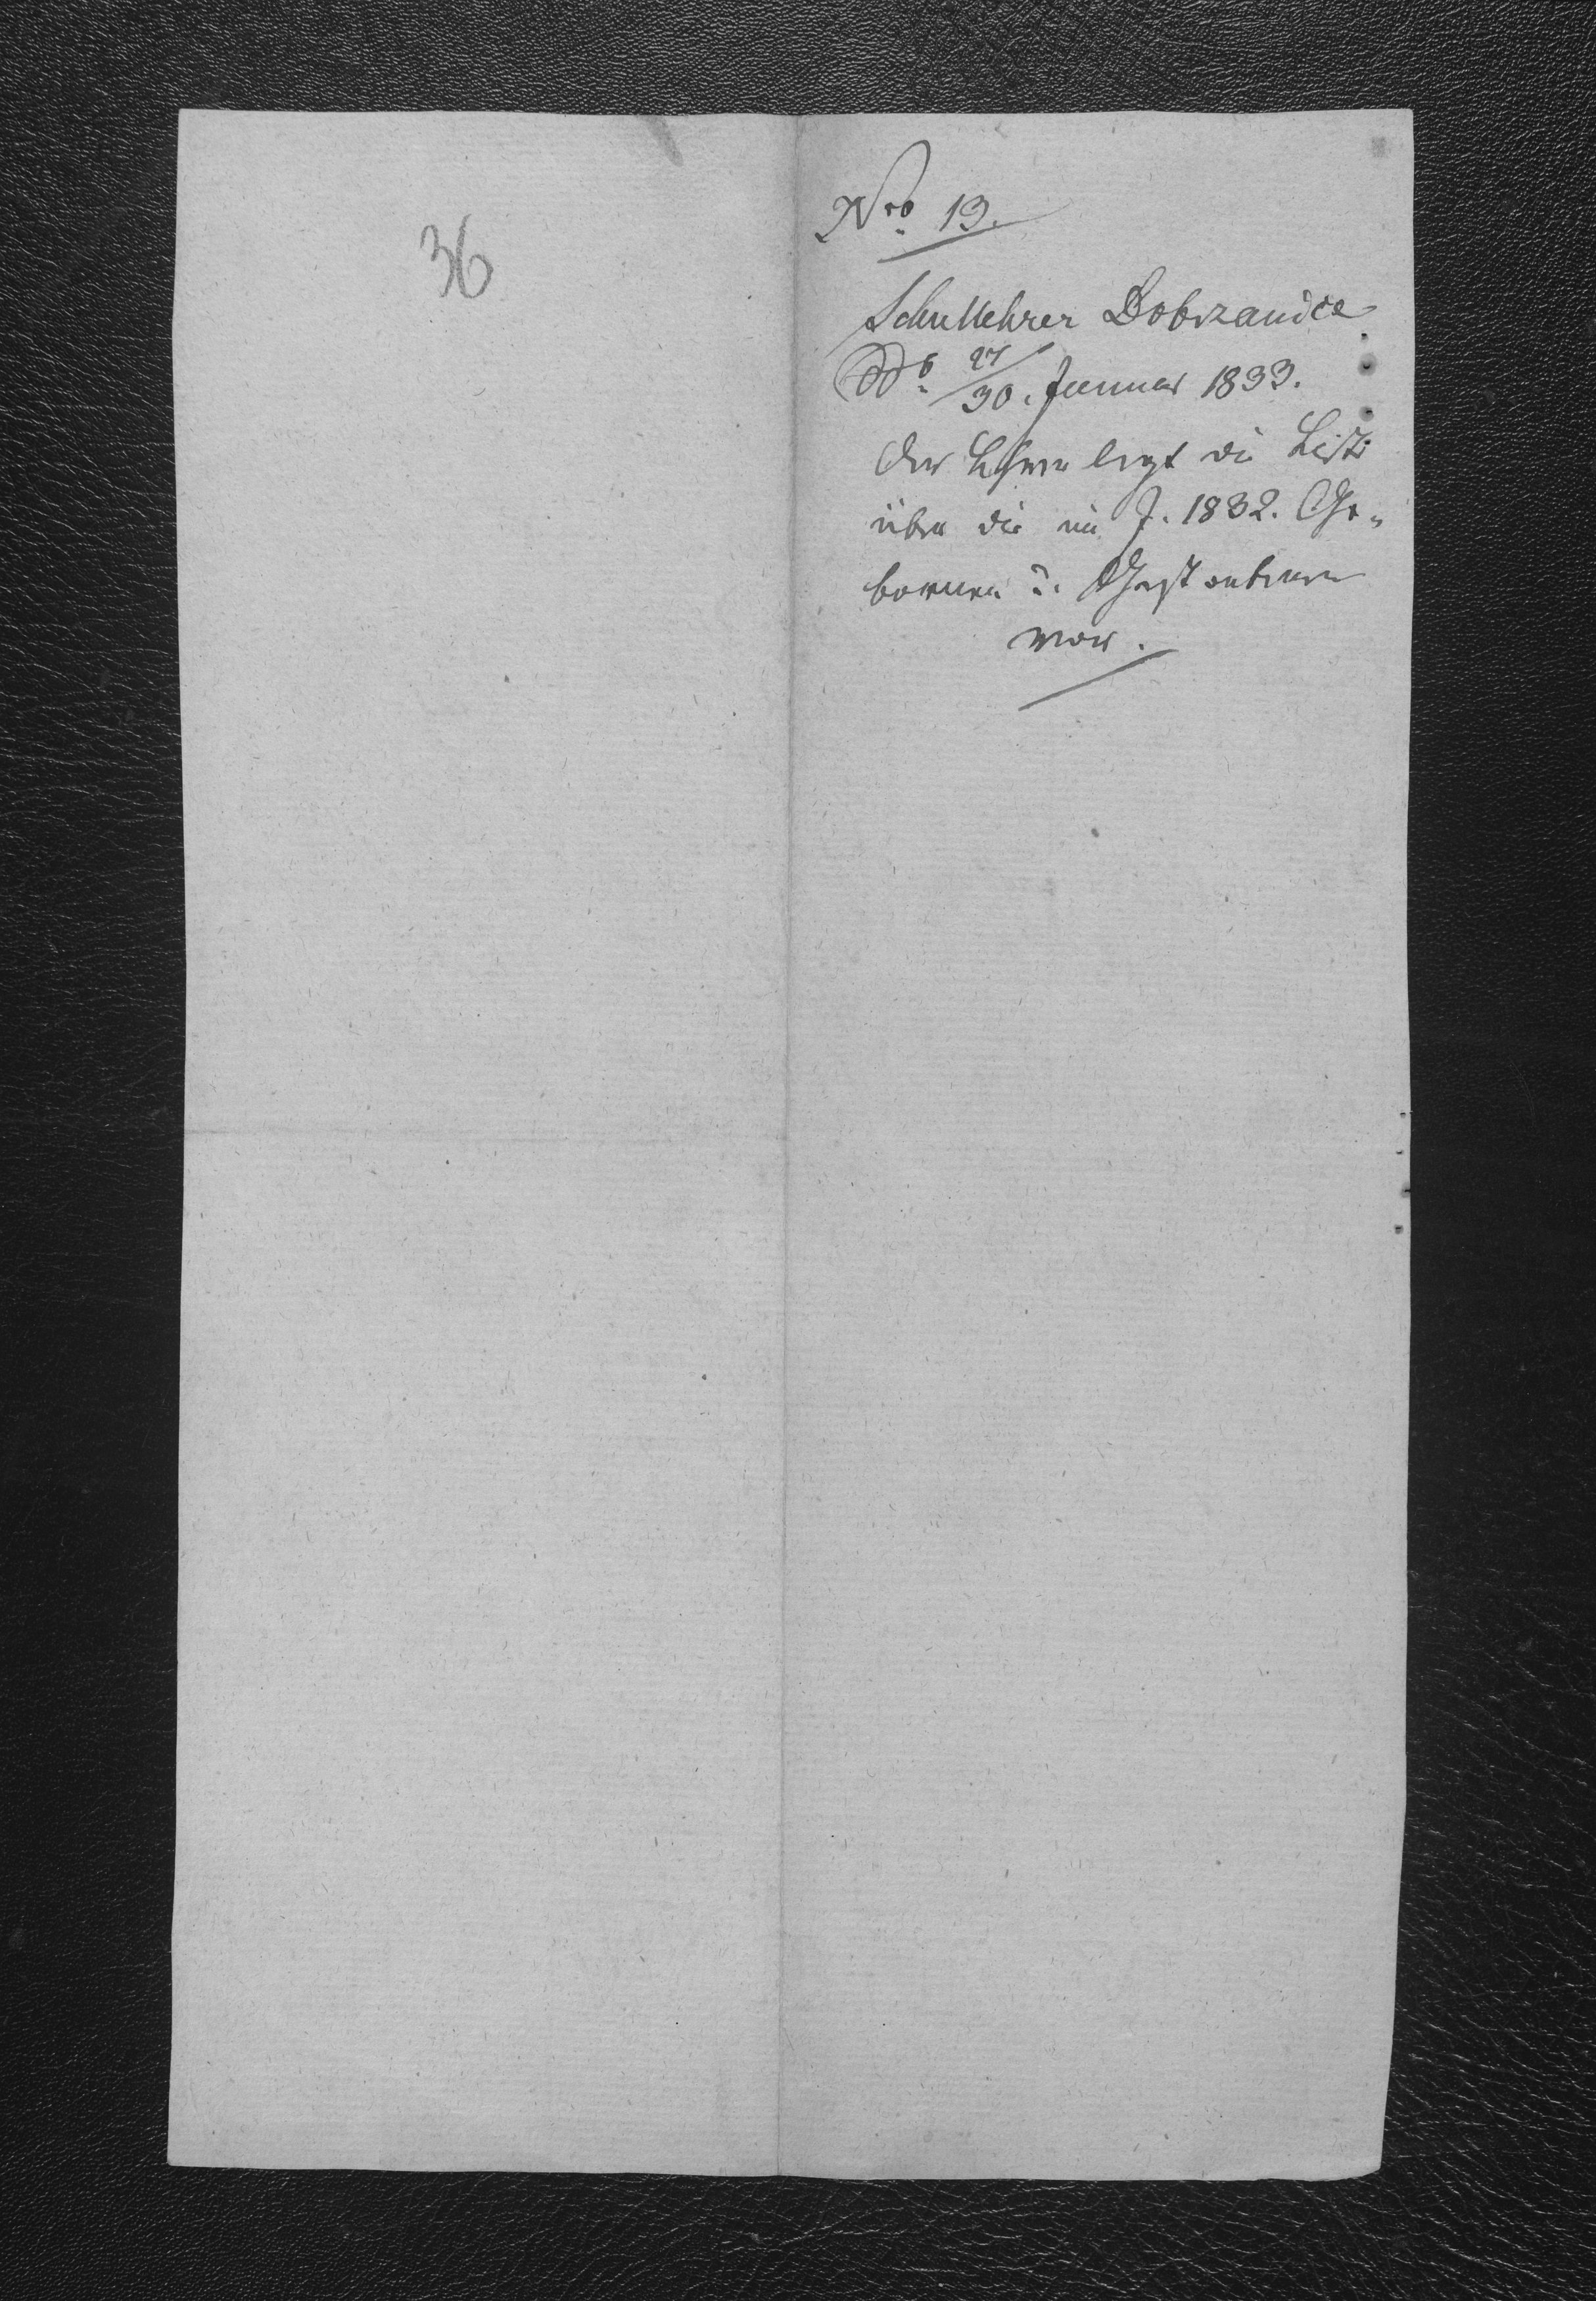 36
Nro 19.
Schullehrer Dobrzanice
ddo 27/30. Januar 1833.
Der Lehrer legt die Liste
über die im J. 1832. Ge-
bornen u. Gestorbenen
vor.